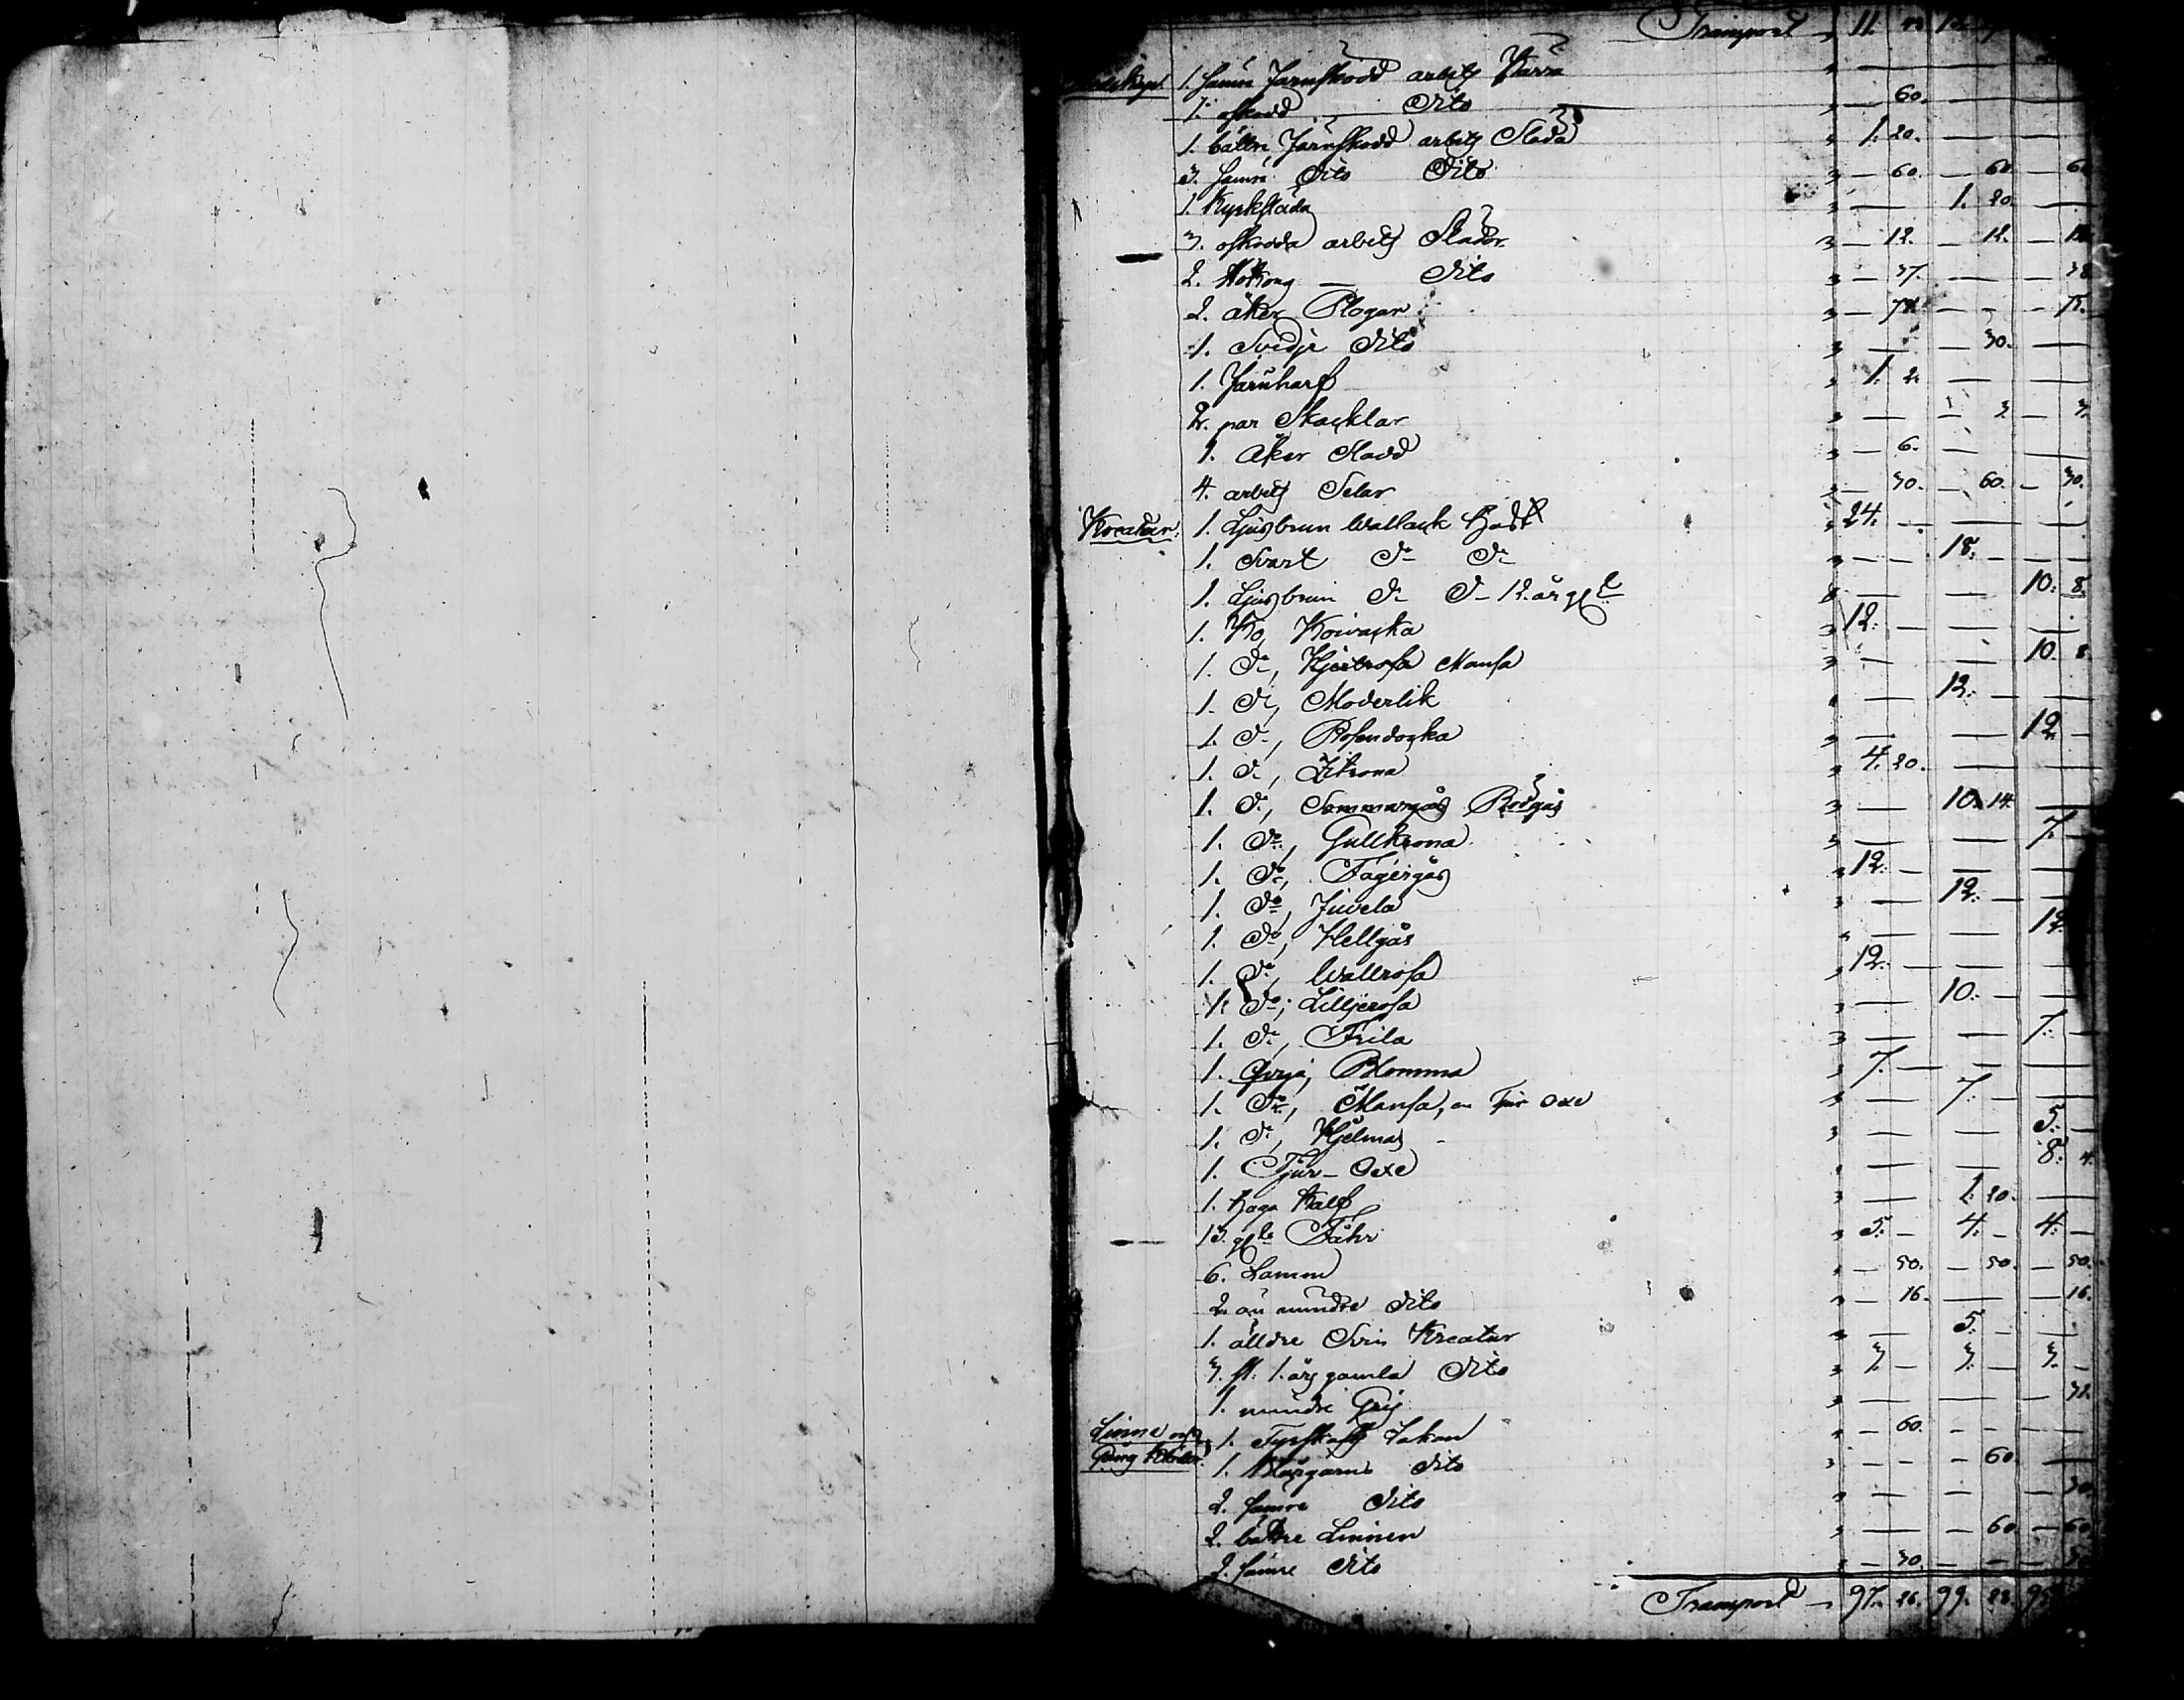 Transport 11.
1. sämre Jernskodd arbets Kärra — — —
1. oskodd Dito — 60. — —
1. bättre Järnskodd arbets Släda 1. 20. — —
3. sämre Dito Dito — 60. — 60 — 60
1. Kyrksläda — 1. 20. —
3. oskodda arbets Slädor — 12. — 12. — 12.
2. Stöttong — Dito — 37. — — 38.
2. åker Plogar — 74. — — 15.
1. Svedje Dito — — 30. —
1. Järnharf 1. 2. — —
2. par Skacklar — — 3. — 3.
1. Åker Sladd — 6. — —
4. arbets Selar — 30. — 60. — 30.
Kreatur. 1. Ljusbrun Wallack Häst 24. — — —
1. Svart Do Do — 18. — —
1. Ljusbrun Do Do 12 år gl — — 10. 8.
1. Ko, 12. — — —
1. Do, Hjertrosa Mansa — — 10. 8
1. Do, Moderlik — 12. — —
1. Do, Rosendocka — — 12. —
1. Do, Zitrona 4. 20. — —
1. Do, Sommargås Rödgås — 10. 14. —
1. Do, Gullkrona — — 7. —
1. Do, Fagergås 12. — — —
1. Do, Juvela — 12. — —
1. Do, Hellgås — — 12.
1. Do, Wallrosa 12. — — —
1. Do, Lilljerosa — 10. — —
1. Do, Frila — — 7. —
1. Qviga, Blomma 7. — — —
1. Do, Mansa, en Tjur Oxe — 7. — —
1. Do, Hjelmas — — 5. —
1. Tjur-Oxe — — 8. 4.
1. Kalf — 1. 20. —
13. gla Fåhr 5. — 4. — 4. —
6. Lamm — 50. — 50. — 50.
2. mindre Dito — 16. — — 16.
1. älldre Svin Kreatur — 5. — —
3. st. 1. års gamla Dito 3. — 3. — 3. —
1. mindre Gris — — — 32.
Linne och
Gång Kläder. 1. Lakan — 60. — — — —
1. Blårgarns Dito — — — 60. —
2. sämre Dito — — — 30.
2. bättre Linnen — — 60. — 60
2. sämre Dito — 30. — — —
Transport 97. 26. 99. 28.